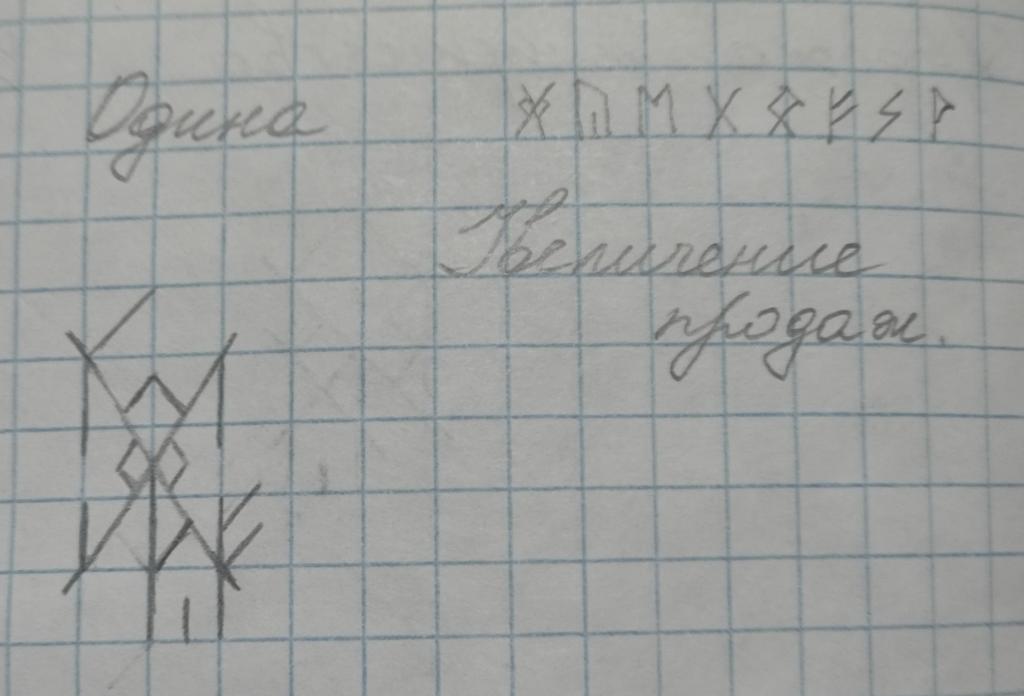 Одина ᚸ ᚣ ᛖ ᚷ ᛟ ᚠ ᛋ ᚹ
Увеличение
продаж.